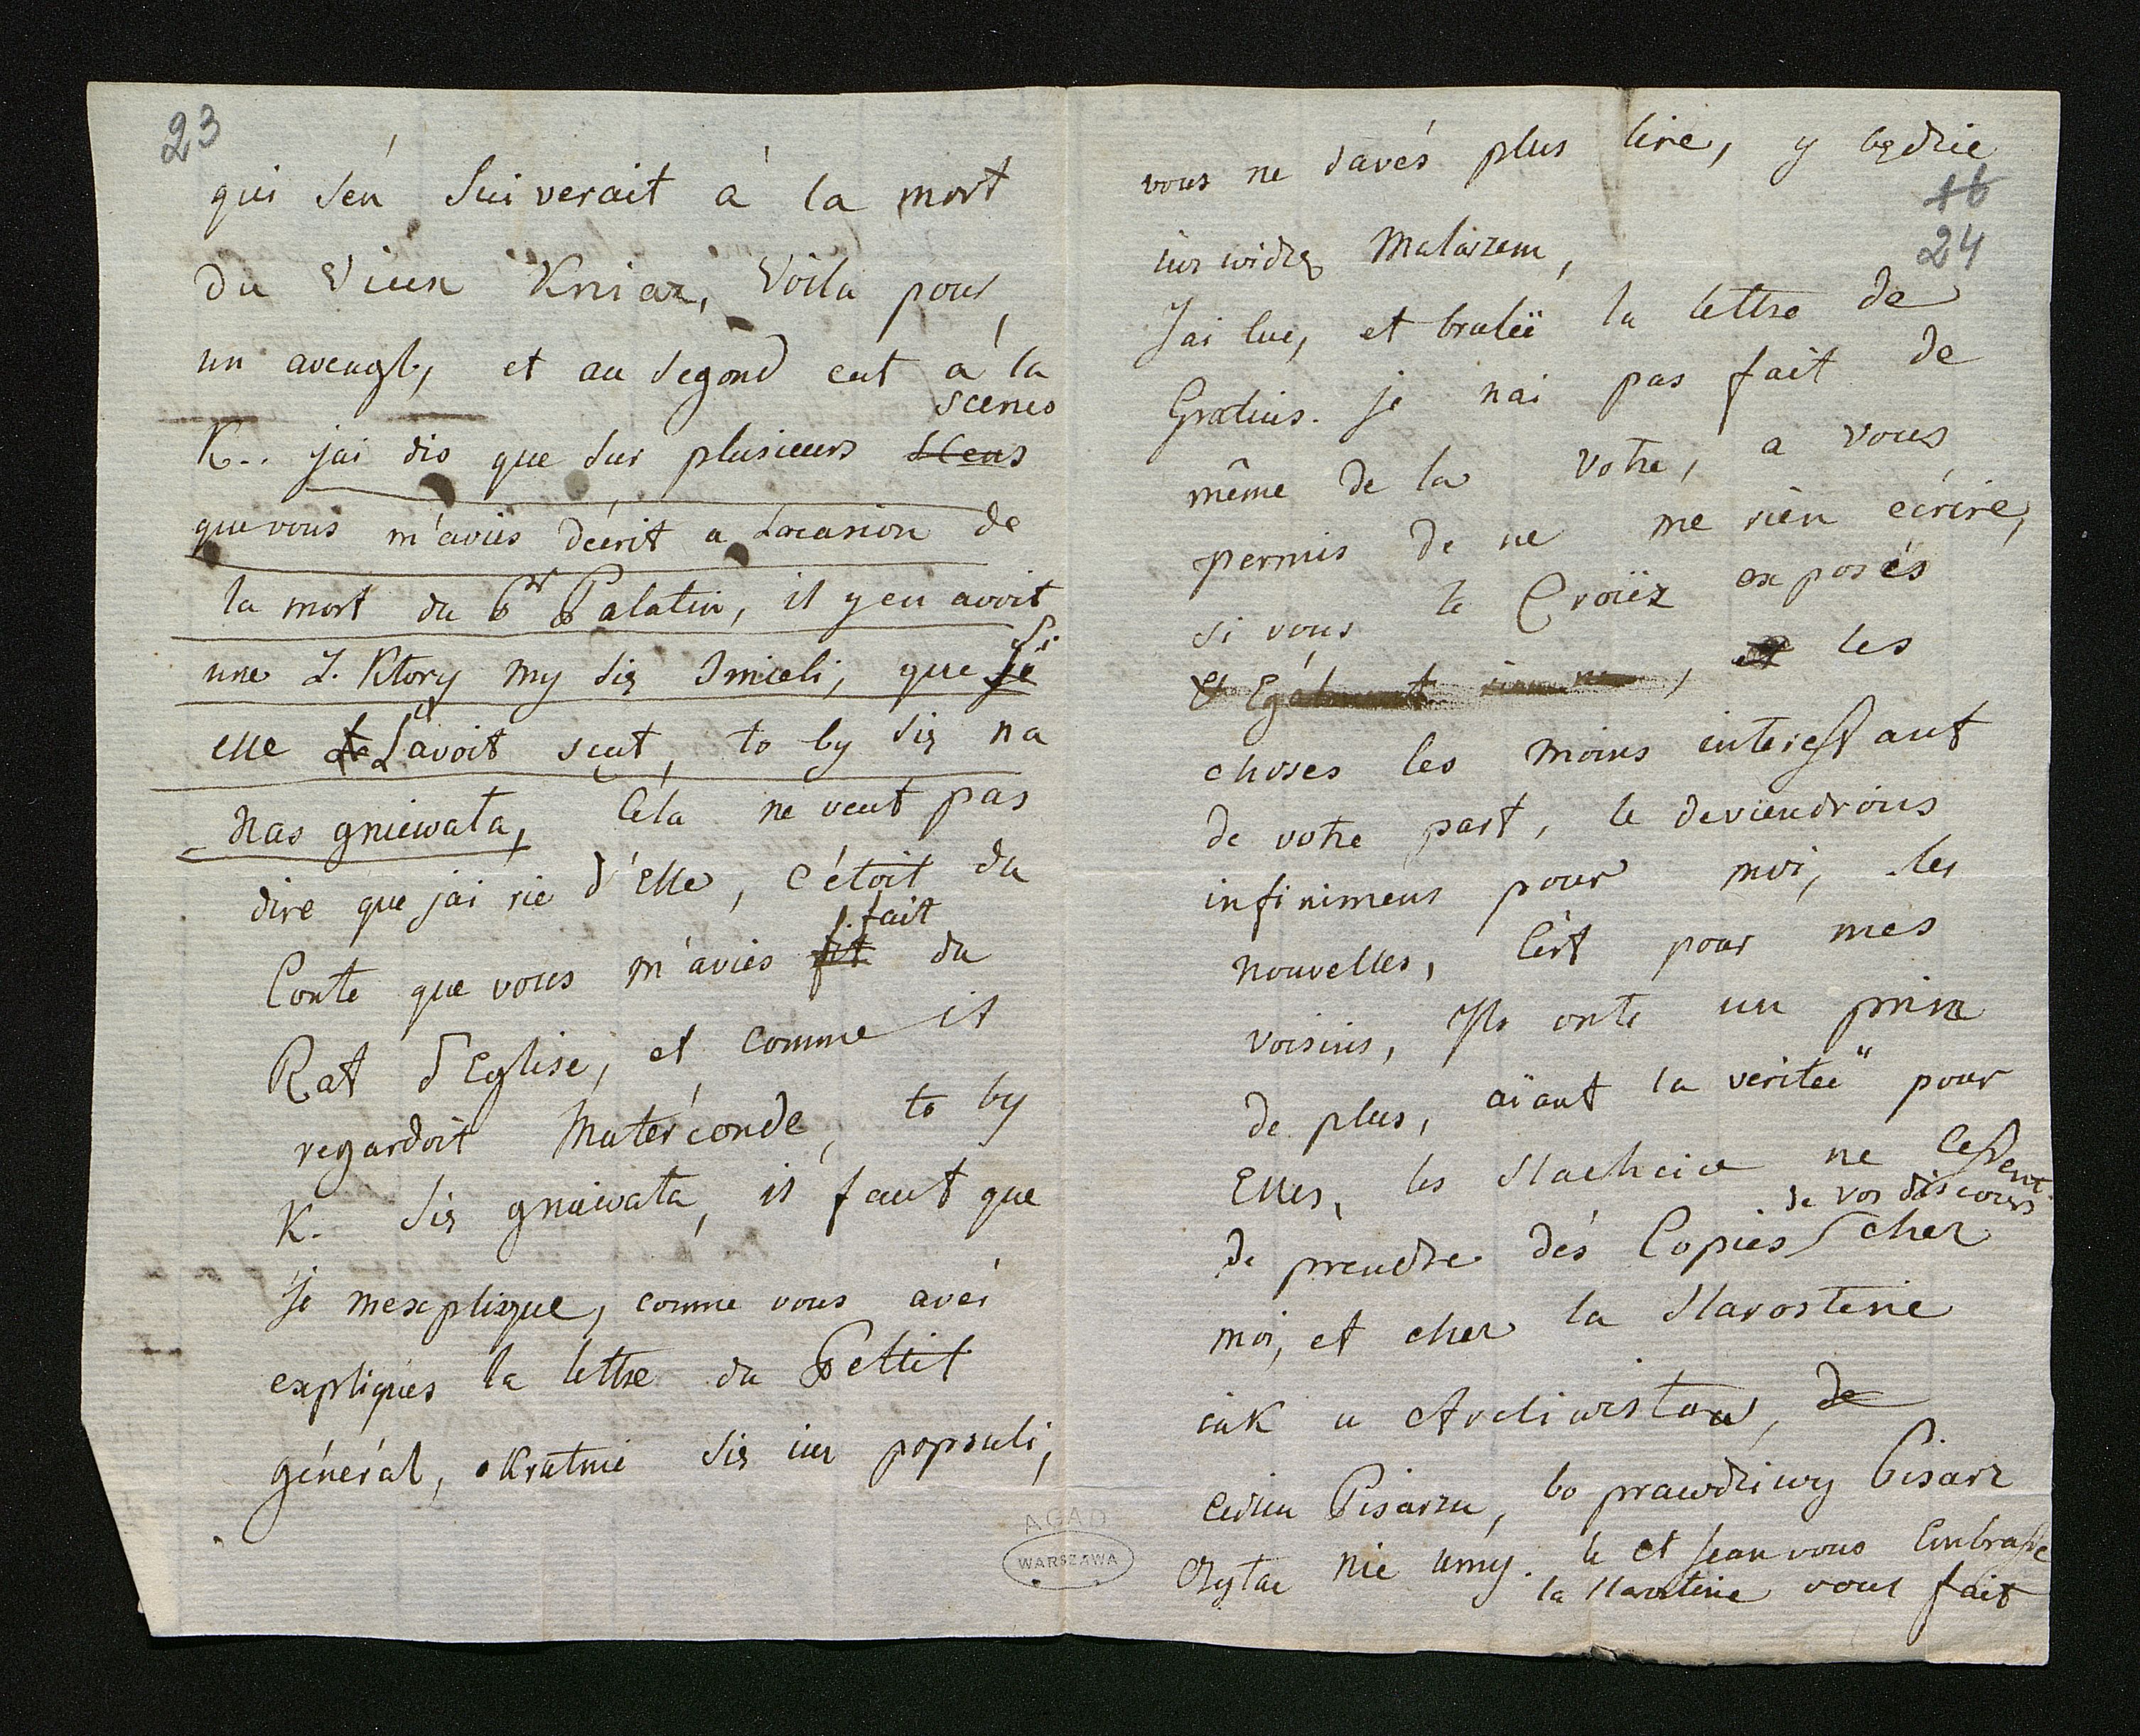 23
qui s'én suiverait à la mort
du vieux Kniaz, Voila pour
un aveugl, et au segond eut à la
K.. jai dis que sur plusieurs sceus scenes
que vous m'aviés décrit a Locasion de
la mort du Pr Palatin, il y en avoit
une Z. Ktory my się smieli, que je si
elle le L'avoit sçut, to by się na
nas gniewata, Céla ne veut pas
dire que jai rie d'Elle, c'étoit du
Conte que vous m'aviés fit fait du
Rat d'Eglise, et comme il
regardoit Materconde, to by
K. się gniewata, il faut que
je mexplisque, comme vous avés
expliqués la lettre du Pettit
général, okratnie się iuz popsuli,
vous ne savés plus lire, y będzie
16
24
iuz widzę Malarzem,
J'ai lue, et bruleë la lettre de
Gratius. je nai pas fait de
même de la votre, a vous
permis de ne me rien ecrire,
si vous le Croiiéz exposés
Et Egalement, et les
choses les moins interessant
de votre part, le deviendrons
infinimens pour moi, les
nouvelles, C'est pour mes
voisins, Ils onte un prix
de plus, aïant la veriteë pour
Elles, les Slachcice ne Cessent
de prendre dés Copies de vos discours chez
moi, et chez la Starostine
iak u Archiwistow, de
Pisarzu, bo prawdziwy Pisarz
Czytac nie umy. le et Jean vous Embrasse
la Starostine vous fait
AGAD
WARSZAWA